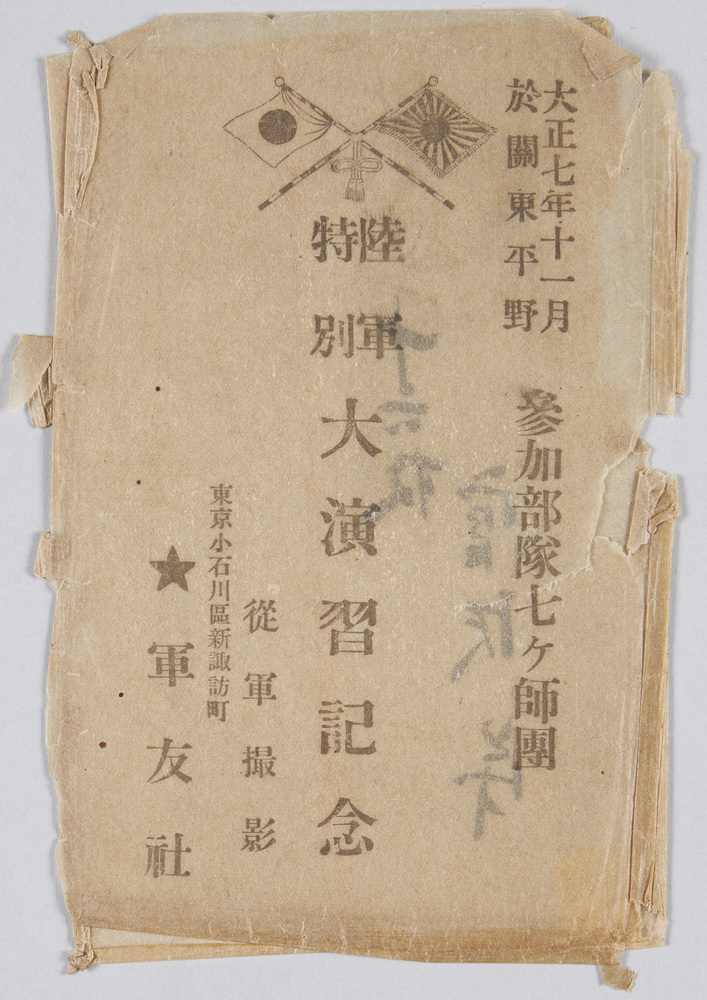 大正七年十一月
於關東平野
參加部隊七ヶ師團
陸軍
特別
大演習記念
從軍撮影
東京小石川區新諏訪町
★軍友社